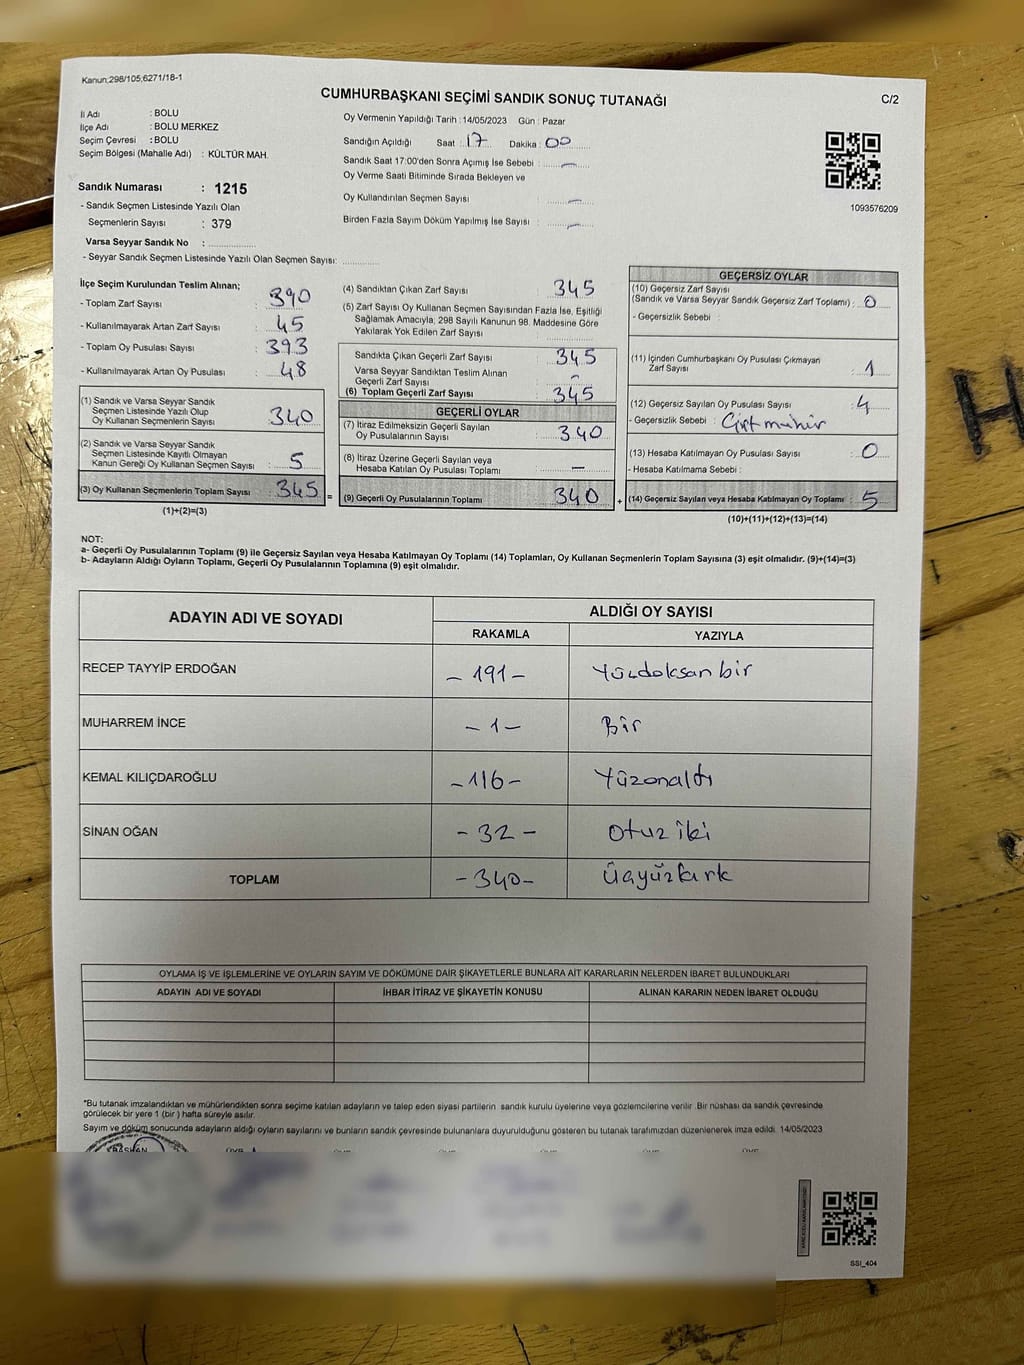 Kanun;298/105;6271/18-1
CUMHURBAŞKANI SEÇİMİ SANDIK SONUÇ TUTANAĞI
C/2
İl Adı : BOLU
İlçe Adı : BOLU MERKEZ
Seçim Çevresi : BOLU
Seçim Bölgesi (Mahalle Adı) : KÜLTÜR MAH.
Sandık Numarası : 1215
- Sandık Seçmen Listesinde Yazılı Olan
Seçmenlerin Sayısı : 379
Varsa Seyyar Sandık No : ..............
- Seyyar Sandık Seçmen Listesinde Yazılı Olan Seçmen Sayısı: ............
Oy Vermenin Yapıldığı Tarih : 14/05/2023 Gün : Pazar
Sandığın Açıldığı Saat : 17 Dakika : 00
Sandık Saat 17:00'den Sonra Açımış İse Sebebi : —
Oy Verme Saati Bitiminde Sırada Bekleyen ve
Oy Kullandırılan Seçmen Sayısı : —
Birden Fazla Sayım Döküm Yapılmış İse Sayısı : —
1093576209
İlçe Seçim Kurulundan Teslim Alınan;
- Toplam Zarf Sayısı : 390
- Kullanılmayarak Artan Zarf Sayısı : 45
- Toplam Oy Pusulası Sayısı : 393
- Kullanılmayarak Artan Oy Pusulası : 48
(1) Sandık ve Varsa Seyyar Sandık
Seçmen Listesinde Yazılı Olup
Oy Kullanan Seçmenlerin Sayısı : 340
(2) Sandık ve Varsa Seyyar Sandık
Seçmen Listesinde Kayıtlı Olmayan
Kanun Gereği Oy Kullanan Seçmen Sayısı : 5
(3) Oy Kullanan Seçmenlerin Toplam Sayısı : 345 =
(1)+(2)=(3)
(4) Sandıktan Çıkan Zarf Sayısı : 345
(5) Zarf Sayısı Oy Kullanan Seçmen Sayısından Fazla İse, Eşitliği
Sağlamak Amacıyla; 298 Sayılı Kanunun 98. Maddesine Göre
Yakılarak Yok Edilen Zarf Sayısı : ............
Sandıkta Çıkan Geçerli Zarf Sayısı : 345
Varsa Seyyar Sandıktan Teslim Alınan
Geçerli Zarf Sayısı : -
(6) Toplam Geçerli Zarf Sayısı : 345
GEÇERLİ OYLAR
(7) İtiraz Edilmeksizin Geçerli Sayılan
Oy Pusulalarının Sayısı : 340
(8) İtiraz Üzerine Geçerli Sayılan veya
Hesaba Katılan Oy Pusulası Toplamı : —
(9) Geçerli Oy Pusulalarının Toplamı : 340 +
GEÇERSİZ OYLAR
(10) Geçersiz Zarf Sayısı
(Sandık ve Varsa Seyyar Sandık Geçersiz Zarf Toplamı) : 0
- Geçersizlik Sebebi :
(11) İçinden Cumhurbaşkanı Oy Pusulası Çıkmayan
Zarf Sayısı : 1
(12) Geçersiz Sayılan Oy Pusulası Sayısı : 4
- Geçersizlik Sebebi : Çift mühür
(13) Hesaba Katılmayan Oy Pusulası Sayısı : 0
- Hesaba Katılmama Sebebi :
(14) Geçersiz Sayılan veya Hesaba Katılmayan Oy Toplamı : 5
(10)+(11)+(12)+(13)=(14)
NOT:
a- Geçerli Oy Pusulalarının Toplamı (9) ile Geçersiz Sayılan veya Hesaba Katılmayan Oy Toplamı (14) Toplamları, Oy Kullanan Seçmenlerin Toplam Sayısına (3) eşit olmalıdır. (9)+(14)=(3)
b- Adayların Aldığı Oyların Toplamı, Geçerli Oy Pusulalarının Toplamına (9) eşit olmalıdır.
ADAYIN ADI VE SOYADI ALDIĞI OY SAYISI
RAKAMLA YAZIYLA
RECEP TAYYİP ERDOĞAN - 191 - Yüzdoksan bir
MUHARREM İNCE - 1 - Bir
KEMAL KILIÇDAROĞLU - 116 - Yüzonaltı
SİNAN OĞAN - 32 - Otuz iki
TOPLAM - 340 - Üçyüzkırk
OYLAMA İŞ VE İŞLEMLERİNE VE OYLARIN SAYIM VE DÖKÜMÜNE DAİR ŞİKAYETLERLE BUNLARA AİT KARARLARIN NELERDEN İBARET BULUNDUKLARI
ADAYIN ADI VE SOYADI İHBAR İTİRAZ VE ŞİKAYETİN KONUSU ALINAN KARARIN NEDEN İBARET OLDUĞU
*Bu tutanak imzalandıktan ve mühürlendikten sonra seçime katılan adayların ve talep eden siyasi partilerin sandık kurulu üyelerine veya gözlemcilerine verilir. Bir nüshası da sandık çevresinde
görülecek bir yere 1 (bir) hafta süreyle asılır.
Sayım ve döküm sonucunda adayların aldığı oyların sayılarını ve bunların sandık çevresinde bulunanlara duyurulduğunu gösteren bu tutanak tarafımızdan düzenlenerek imza edildi. 14/05/2023
BAŞKAN
SSI_404
H